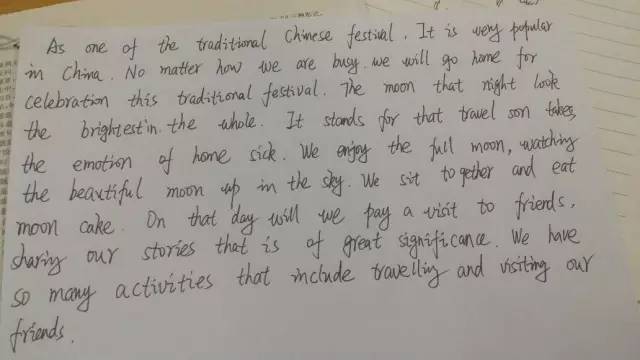 As one of the traditional Chinese festival. It is very popular
in China. No matter how we are busy. we will go home for
celebration this traditional festival. The moon that night look
the brightest in. the whole. It stands for that travel son takes,
the emotion of home sick. We enjoy the full moon, watching
the beautiful moon up in the sky. We sit together and eat
moon cake. On that day will we pay a visit to friends,
sharing our stories that is of great significance. We have
so many activities that include travelling and visiting our
friends.